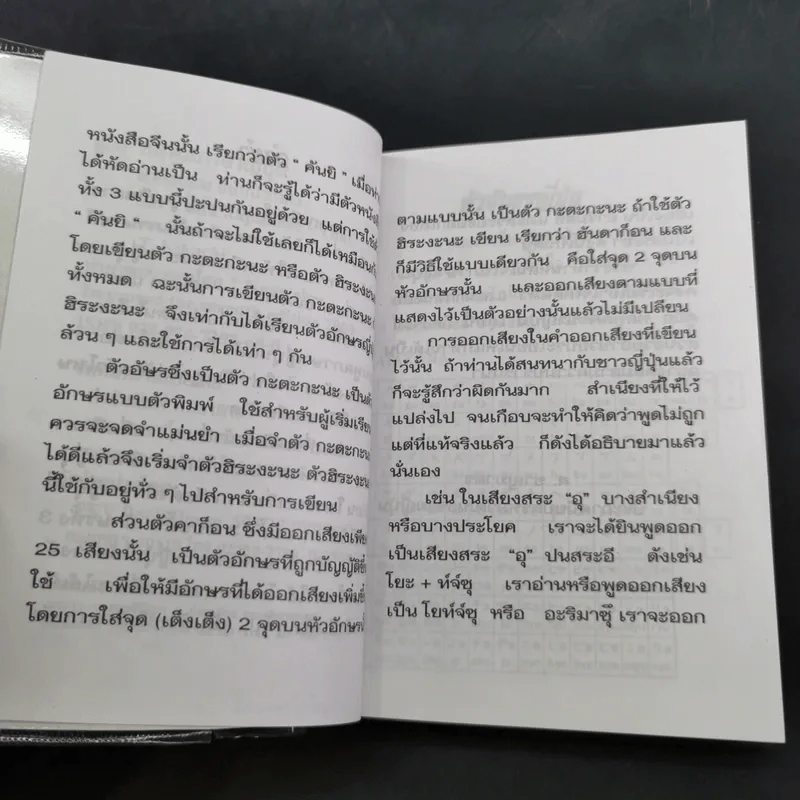 หนังสือจีนนั้น เรียกว่าตัว " คันยิ " เมื่อ
ได้หัดอ่านเป็น ท่านก็จะรู้ได้ว่ามีตัวหนัง
ทั้ง 3 แบบนี้ปะปนกันอยู่ด้วย แต่การใช้
" คันยิ " นั้นถ้าจะไม่ใช้เลยก็ได้เหมือน
โดยเขียนตัว กะตะกะนะ หรือตัว ฮิระงะนะ
ทั้งหมด ฉะนั้นการเขียนตัว กะตะกะนะ
ฮิระงะนะ จึงเท่ากับได้เรียนตัวอักษร
ล้วน ๆ และใช้การได้เท่า ๆ กัน
ตัวอัษรซึ่งเป็นตัว กะตะกะนะ เป็น
อักษรแบบตัวพิมพ์ ใช้สำหรับผู้เริ่ม
ควรจะจดจำแม่นยำ เมื่อจำตัว กะตะกะนะ
ได้ดีแล้วจึงเริ่มจำตัวฮิระงะนะ ตัวฮิระงะนะ
นี้ใช้กับอยู่ทั่ว ๆ ไปสำหรับการเขียน
ส่วนตัวคาก็อน ซึ่งมีออกเสียง
25 เสียงนั้น เป็นตัวอักษรที่ถูกบัญญัติ
ใช้ เพื่อให้มีอักษรที่ได้ออกเสียงเพิ่ม
โดยการใส่จุด (เต็งเต็ง) 2 จุดบนหัวอักษร
ตามแบบนั้น เป็นตัว กะตะกะนะ ถ้าใช้ตัว
ฮิระงะนะ เขียน เรียกว่า ฮันดาก็อน และ
ก็มีวิธีใช้แบบเดียวกัน คือใส่จุด 2 จุดบน
หัวอักษรนั้น และออกเสียงตามแบบที่
แสดงไว้เป็นตัวอย่างนั้นแล้วไม่มีเปลี่ยน
การออกเสียงในคำออกเสียงที่เขียน
ไว้นั้น ถ้าท่านได้สนทนากับชาวญี่ปุ่นแล้ว
ก็จะรู้สึกว่าผิดกันมาก สำเนียงที่ให้ไว้
แปล่งไป จนเกือบจะทำให้คิดว่าพูดไม่ถูก
แต่ที่แท้จริงแล้ว ก็ดังได้อธิบายมาแล้ว
นั่นเอง
เช่น ในเสียงสระ "อุ" บางสำเนียง
หรือบางประโยค เราจะได้ยินพูดออก
เป็นเสียงสระ "อุ" ปนสระอี ดังเช่น
โยะ + ท์จ์ซุ เราอ่านหรือพูดออกเสียง
เป็น โยท์จ์ซุ หรือ อะริมาซุ๊ เราจะออก